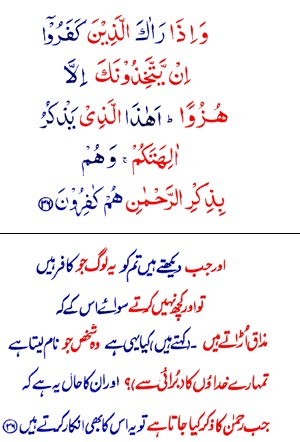 وَاِذَا رَاٰكَ الَّذِيْنَ كَفَرُوْٓا
اِنْ يَّتَّخِذُوْنَكَ اِلَّا
هُـزُوًا ؕ اَهٰذَا الَّذِىْ يَذْكُرُ
اٰلِهَتَكُمْ ۚ وَهُمْ
بِذِكْرِ الرَّحْمٰنِ هُمْ كٰفِرُوْنَ ﴿۳۶﴾
اور جب دیکھتے ہیں تم کو یہ لوگ جو کافر ہیں
تو اور کچھ نہیں کرتے سوائے اس کے کہ
مذاق اُڑاتے ہیں ۔(کہتے ہیں) کیا یہی ہے وہ شخص جو نام لیتا ہے
تمہارے خداؤں کا (بُرائی سے)؟ اور ان کا حال یہ ہے کہ
جب رحمٰن کا ذکر کیا جاتا ہے تو یہ اس کا بھی انکار کرتے ہیں ﴿۳۶﴾